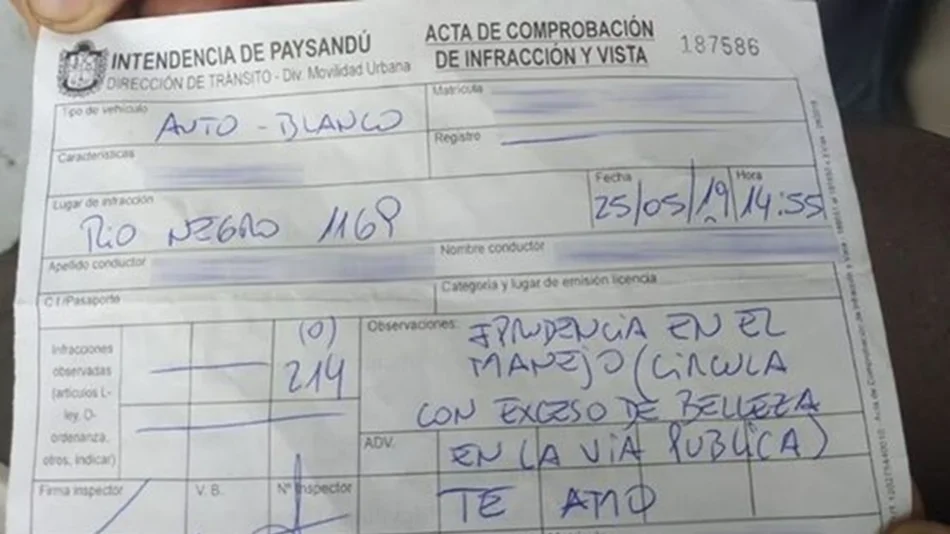 INTENDENCIA DE PAYSANDÚ
DIRECCIÓN DE TRÀNSITO - Div. Movilidad Urbana
ACTA DE COMPROBACIÓN
DE INFRACCIÓN Y VISTA
187586
Tipo de vehículo
AUTO - BLANCO
Matrícula
Características
Registro
Lugar de infracción
RIO NEGRO 1169
Fecha
25/05/19
Hora
14:55
Apellido conductor
Nombre conductor
C.I/Pasaporte
Categoría y lugar de emisión licencia
Infracciones
observadas
(artículos L-
ley, O-
ordenanza,
otros, indicar)
(O)
214
Observaciones:
IPRUDENCIA EN EL
MANEJO (CIRCULA
CON EXCESO DE BELLEZA
EN LA VIA PUBLICA)
ADV.
TE AMO
Firma inspector
V. B.
Nº Inspector